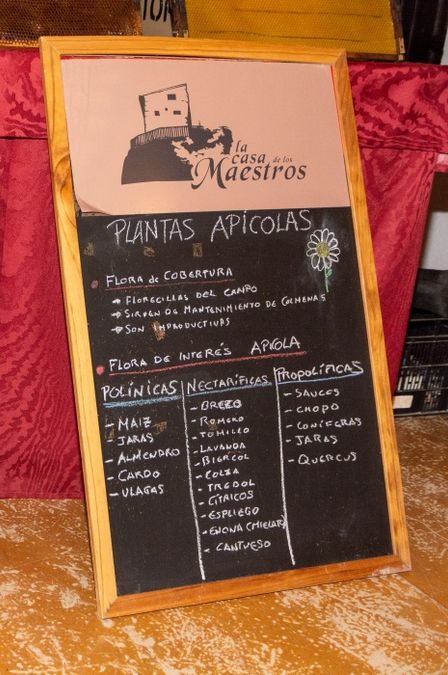 la
casa
de los
Maestros
PLANTAS APÍCOLAS
FLORA de COBERTURA
→ FLORECILLAS DEL CAMPO
→ SIRVEN DE MANTENIMIENTO DE COLMENAS
→ SON IMPRODUCTIVAS
FLORA DE INTERÉS APICOLA
POLÍNICAS
- MAIZ
- JARAS
- ALMENDRO
- CARDO
- ULAGAS
NECTARÍFICAS
- BREZO
- ROMERO
- TOMILLO
- LAVANDA
- BIERCOL
- COLZA
- TREBOL
- CÍTRICOS
- ESPLIEGO
- ENCINA (MIELAR)
- CANTUESO
PROPOLÍFICAS
- SAUCES
- CHOPO
- CONÍFERAS
- JARAS
- QUERCUS